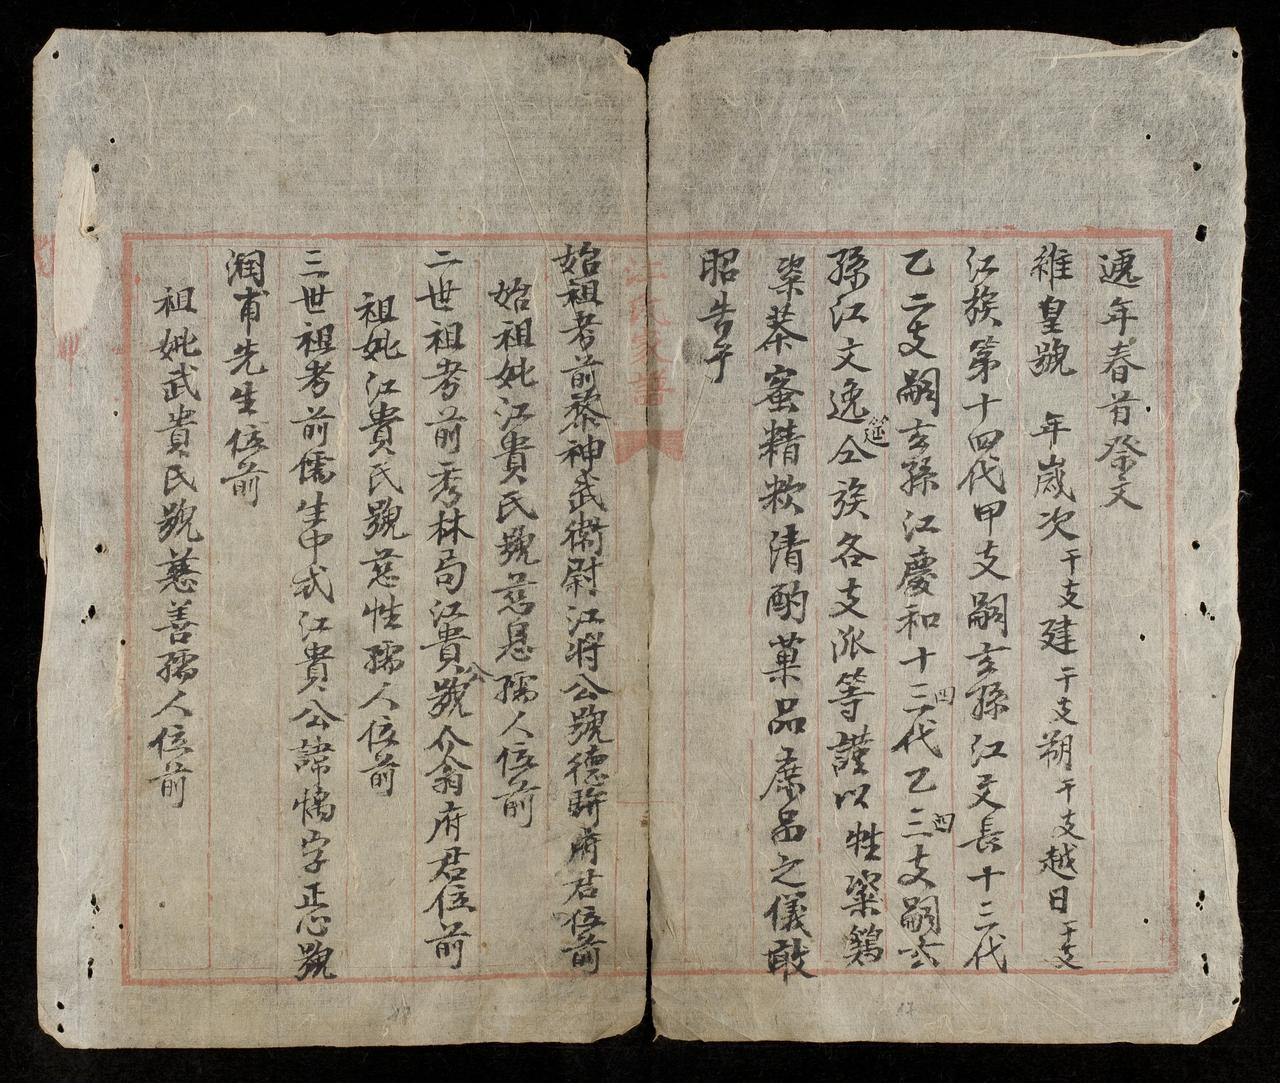 逓年春首祭文
維皇號 年歲次干支建干支朔干支越日干支
江族第十四代甲支嗣玄孫江文長十二代
乙二支嗣玄孫江慶和十三四代乙三四支嗣玄
孫江文逸筵仝族各支派等謹以牲粢鷄
粢茶蜜精粎清酌菓品庶品之儀敢
昭告于
江氏家譜
始祖考前黎神武衛尉江將公號德 府君位前
始祖妣江貴氏號慈 孺人位前
二世祖考前秀林局江貴公號介翁府君位前
祖妣江貴氏號慈性孺人位前
三世祖考前儒生中式江貴公諱 字正心號
潤甫先生位前
祖妣武貴氏號慈善孺人位前